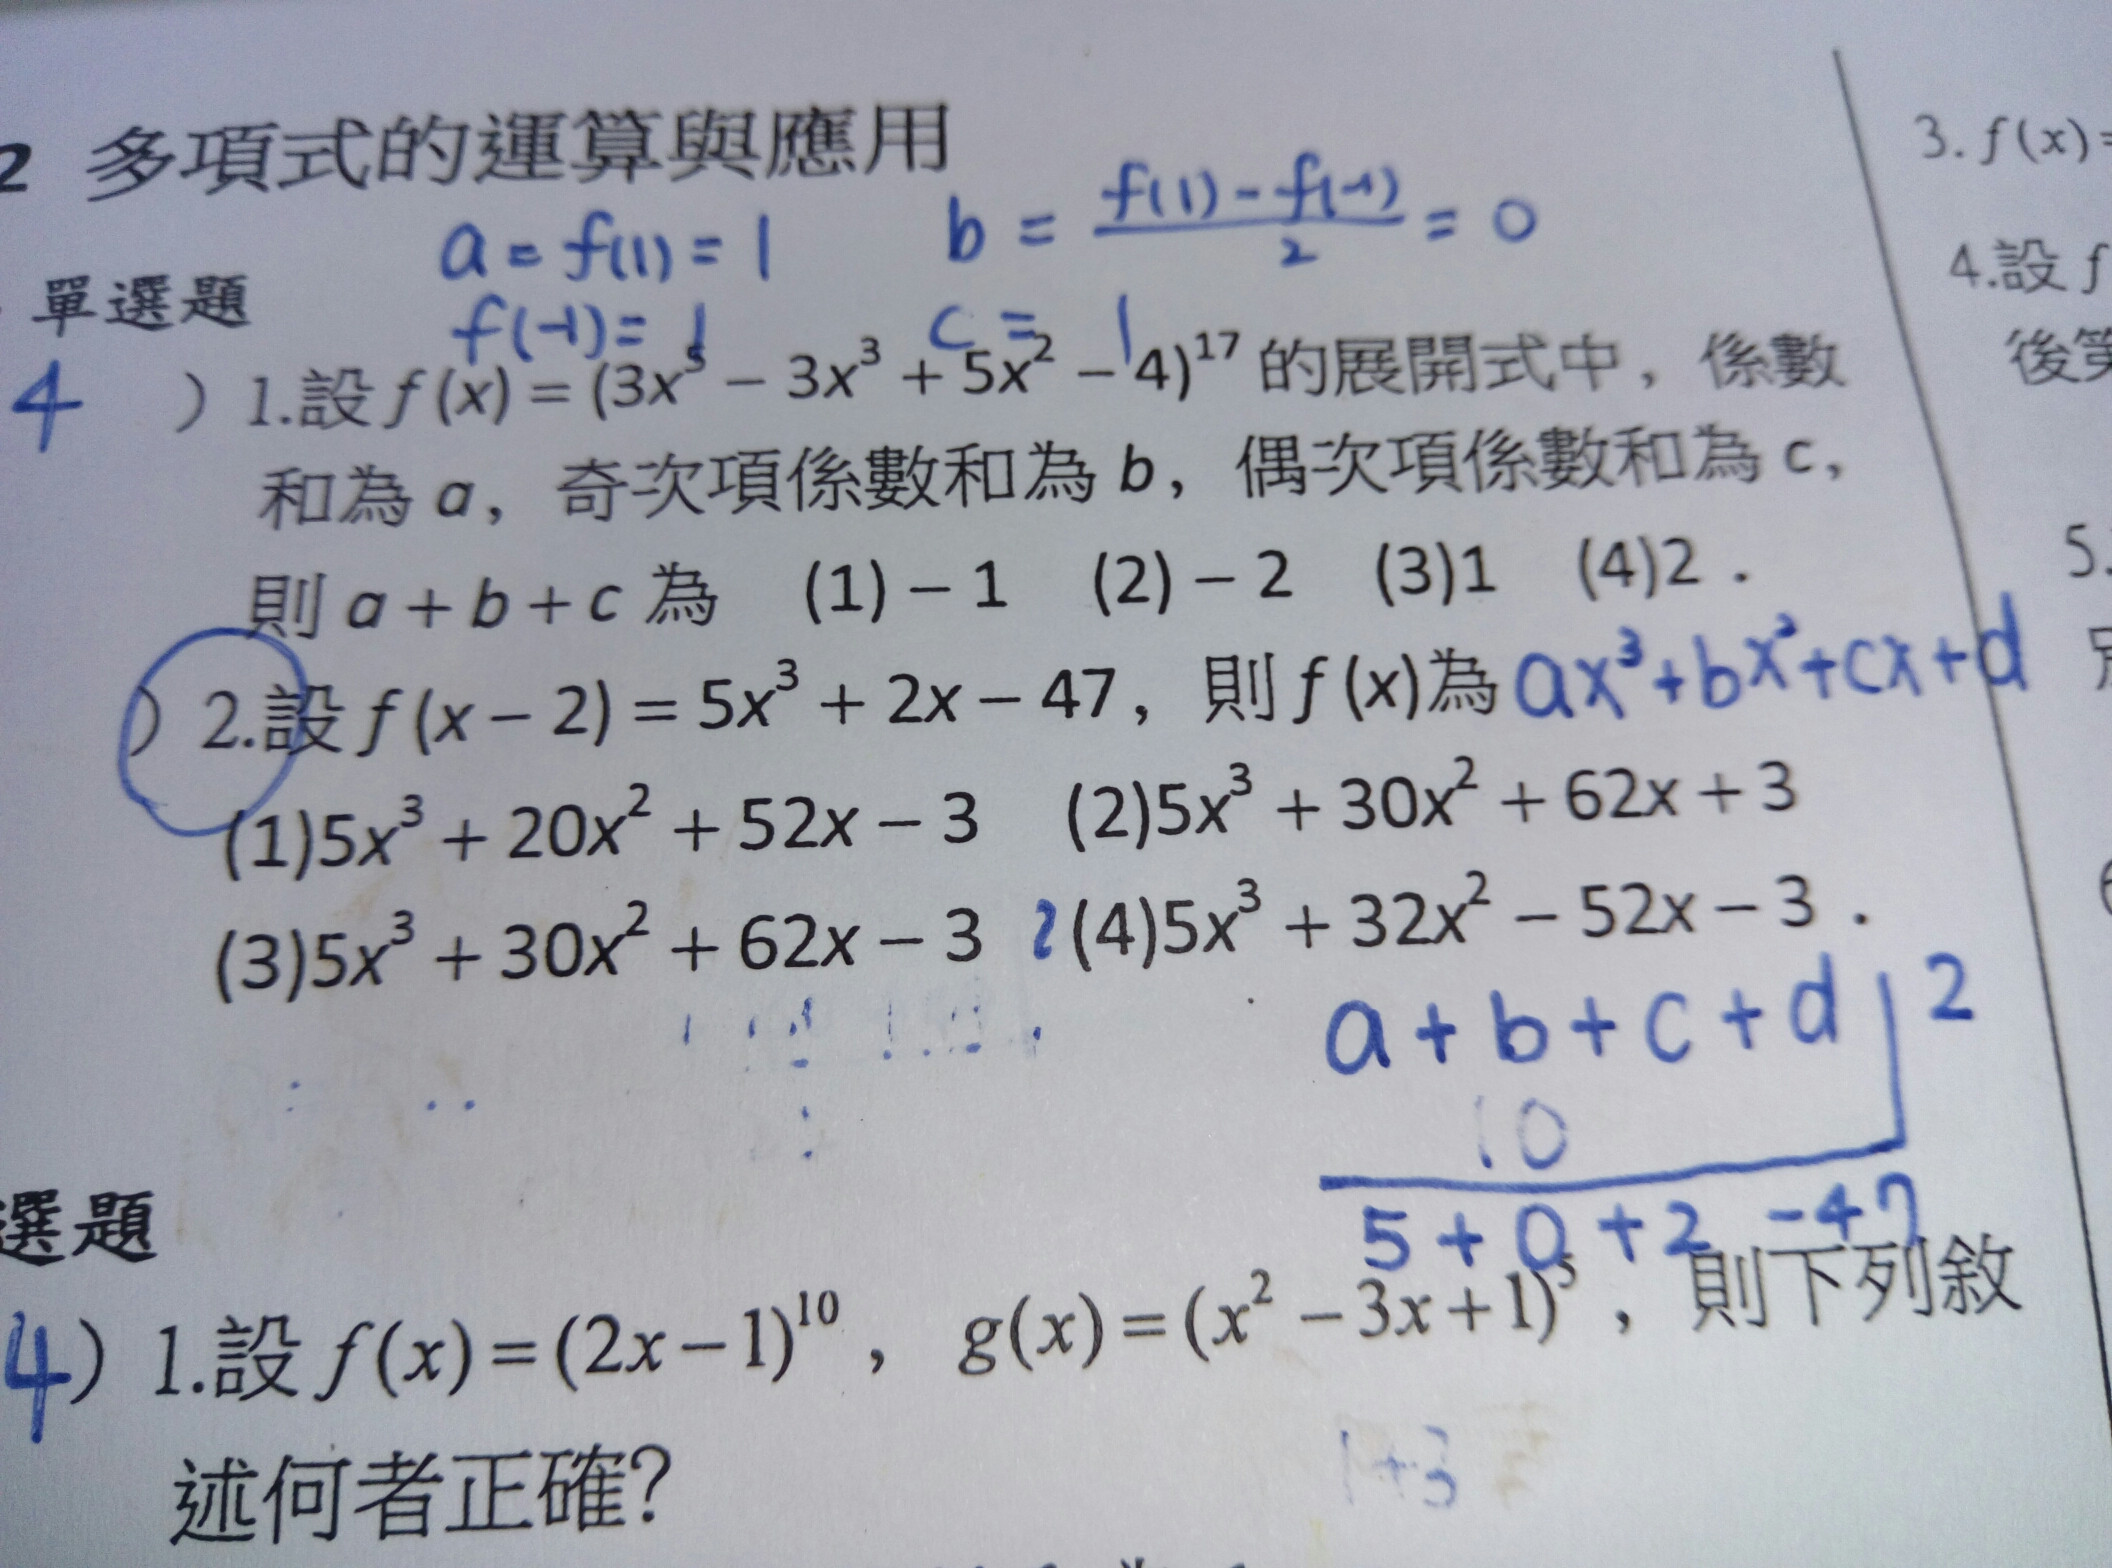 2 多項式的運算與應用
a = f(1) = 1 b = \frac{f(1) - f(-1)}{2} = 0
單選題
f(-1) = 1 c = 1
4 ) 1.設 f(x) = (3x⁵ – 3x³ + 5x² – 4)¹⁷ 的展開式中，係數
和為 a，奇次項係數和為 b，偶次項係數和為 c，
則 a + b + c 為 (1) – 1 (2) – 2 (3)1 (4)2．
) 2.設 f(x – 2) = 5x³ + 2x – 47，則 f(x)為 ax³+bx²+cx+d
(1)5x³ + 20x² + 52x – 3 (2)5x³ + 30x² + 62x + 3
(3)5x³ + 30x² + 62x – 3 (4)5x³ + 32x² – 52x – 3．
a + b + c + d 2
10
5 + 0 + 2 -47
選題
4) 1.設 f(x) = (2x – 1)¹⁰， g(x) = (x² – 3x + 1)⁵，則下列敘
1+3
述何者正確?
3. f(x) =
4.設 f
後第
5.